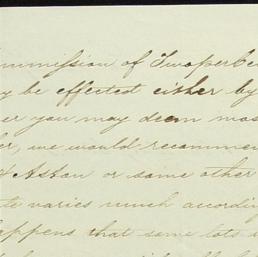 ommission of Two per Ce
y be effected either by
er you may deem mos
er, we would recommen
& Askau or some other
te varies much accordin
appens that some lots